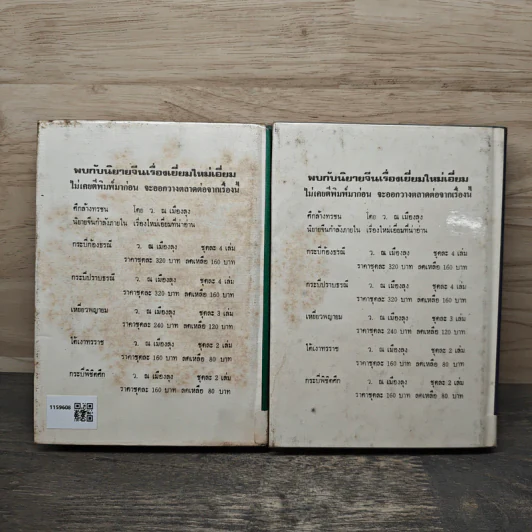 พบกับนิยายจีนเรื่องเยี่ยมใหม่เอี่ยม
ไม่เคยตีพิมพ์มาก่อน จะออกวางตลาดต่อจากเรื่องนี้
ศึกล้างทรชน โดย ว. ณ เมืองลุง
นิยายจีนกำลังภายใน เรื่องใหม่เอี่ยมที่น่าอ่าน
กระบี่ก้องธรณี ว. ณ เมืองลุง ชุดละ 4 เล่ม
ราคาชุดละ 320 บาท ลดเหลือ 160 บาท
กระบี่ปราบธรณี ว. ณ เมืองลุง ชุดละ 4 เล่ม
ราคาชุดละ 320 บาท ลดเหลือ 160 บาท
เหยี่ยวพญายม ว. ณ เมืองลุง ชุดละ 3 เล่ม
ราคาชุดละ 240 บาท ลดเหลือ 120 บาท
ใต้เงาทรราช ว. ณ เมืองลุง ชุดละ 2 เล่ม
ราคาชุดละ 160 บาท ลดเหลือ 80 บาท
กระบี่พิชิตศึก ว. ณ เมืองลุง ชุดละ 2 เล่ม
ราคาชุดละ 160 บาท ลดเหลือ 80 บาท
1159606
พบกับนิยายจีนเรื่องเยี่ยมใหม่เอี่ยม
ไม่เคยตีพิมพ์มาก่อน จะออกวางตลาดต่อจากเรื่องนี้
ศึกล้างทรชน โดย ว. ณ เมืองลุง
นิยายจีนกำลังภายใน เรื่องใหม่เอี่ยมที่น่าอ่าน
กระบี่ก้องธรณี ว. ณ เมืองลุง ชุดละ 4 เล่ม
ราคาชุดละ 320 บาท ลดเหลือ 160 บาท
กระบี่ปราบธรณี ว. ณ เมืองลุง ชุดละ 4 เล่ม
ราคาชุดละ 320 บาท ลดเหลือ 160 บาท
เหยี่ยวพญายม ว. ณ เมืองลุง ชุดละ 3 เล่ม
ราคาชุดละ 240 บาท ลดเหลือ 120 บาท
ใต้เงาทรราช ว. ณ เมืองลุง ชุดละ 2 เล่ม
ราคาชุดละ 160 บาท ลดเหลือ 80 บาท
กระบี่พิชิตศึก ว. ณ เมืองลุง ชุดละ 2 เล่ม
ราคาชุดละ 160 บาท ลดเหลือ 80 บาท